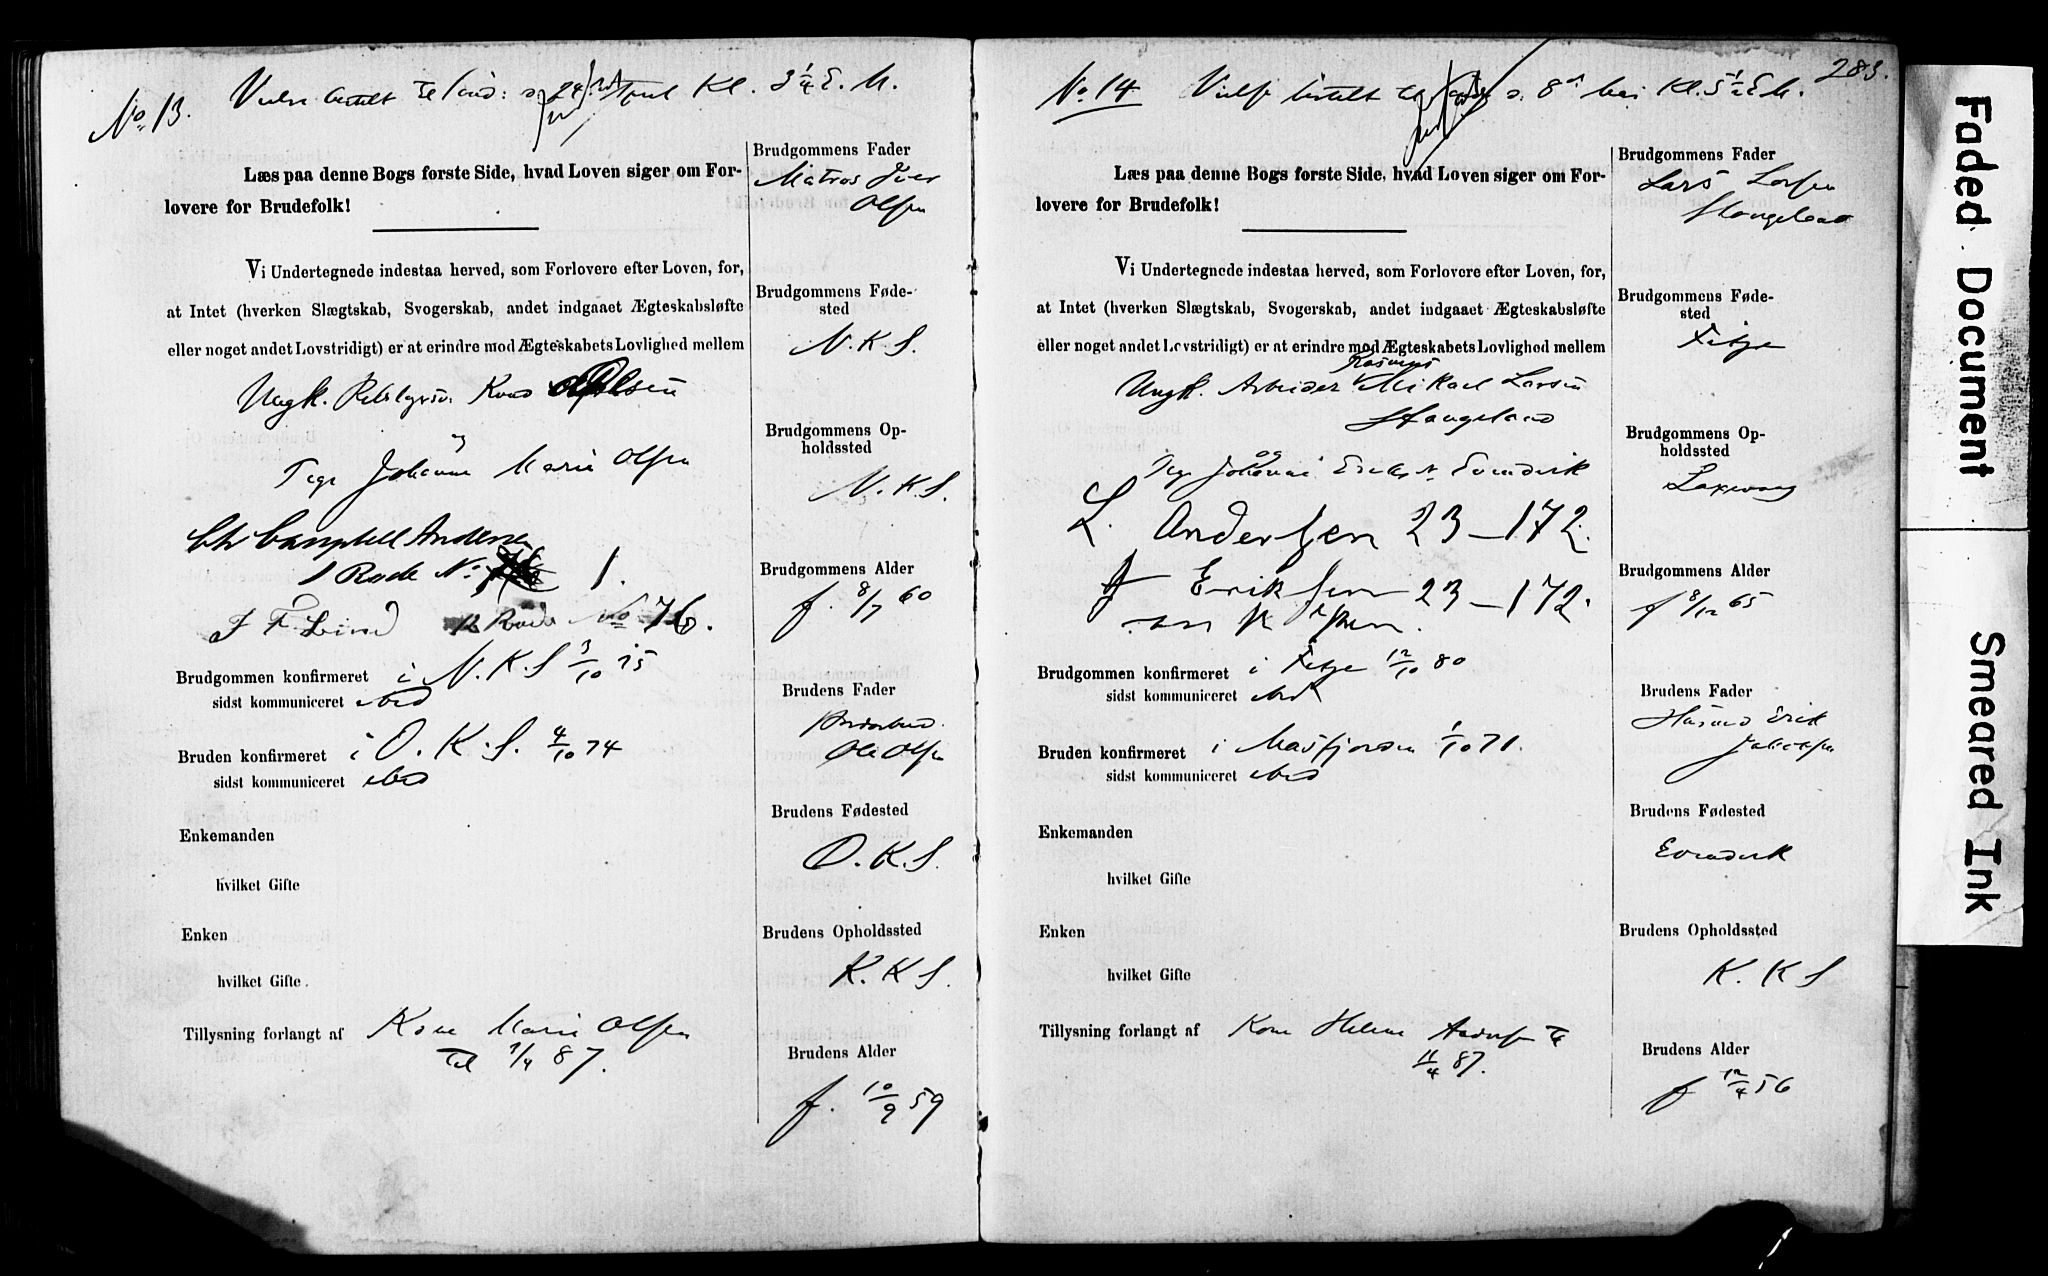 No 13. Vielse bestilt til Kl. 3 1/4 E. M.
Læs paa denne Bogs første Side, hvad Loven siger om For-
lovere for Brudefolk!
Vi Undertegnede indestaa herved, som Forlovere efter Loven, for,
at Intet (hverken Slægtskab, Svogerskab, andet indgaaet Ægteskabsløfte
eller noget andet Lovstridigt) er at erindre mod Ægteskabets Lovlighed mellem
Ungk. Knud Olsen
og
Pige Johanne Marie Olsen
Chr Campbell Andersen
1 Rode No 1.
J F Lind 12 Rode No 76.
Brudgommen konfirmeret i N. K. S 3/10 75
sidst kommuniceret ibid
Bruden konfirmeret i O. K. S. 4/10 74
sidst kommuniceret ibid
Enkemanden
hvilket Gifte
Enken
hvilket Gifte
Tillysning forlangt af Kone Marie Olsen
Til 1/4 87.
Brudgommens Fader
Matros Iver
Olsen
Brudgommens Føde-
sted
N. K. S.
Brudgommens Op-
holdssted
N. K. S.
Brudgommens Alder
f. 8/7 60
Brudens Fader
Ole Olsen
Brudens Fødested
O. K. S.
Brudens Opholdssted
K. K S.
Brudens Alder
f. 10/9 59
283.
No 14 bestilt 8 Mai Kl. 5 1/2 E M.
Læs paa denne Bogs første Side, hvad Loven siger om For-
lovere for Brudefolk!
Vi Undertegnede indestaa herved, som Forlovere efter Loven, for,
at Intet (hverken Slægtskab, Svogerskab, andet indgaaet Ægteskabsløfte
eller noget andet Lovstridigt) er at erindre mod Ægteskabets Lovlighed mellem
Rasmus
Ungk. Arbeider Mikael Larsen
Stangeland
og
Pige Johanne Eriksdr Evindvik
L. Andersen 23-172.
J Eriksen 23-172.
Brudgommen konfirmeret i Fitje 12/10 80
sidst kommuniceret ibid
Bruden konfirmeret i Masfjorden 1/10 71.
sidst kommuniceret ibid
Enkemanden
hvilket Gifte
Enken
hvilket Gifte
Tillysning forlangt af Kone Helene Andersen Til
11/4 87.
Brudgommens Fader
Lars Larsen
Stangeland
Brudgommens Føde-
sted
Fitje
Brudgommens Op-
holdssted
Laxevaag
Brudgommens Alder
f 8/12 65
Brudens Fader
Husmd Erik
Brudens Fødested
Evindvik
Brudens Opholdssted
K. K S
Brudens Alder
f 12/4 56
Faded Document
Smeared Ink